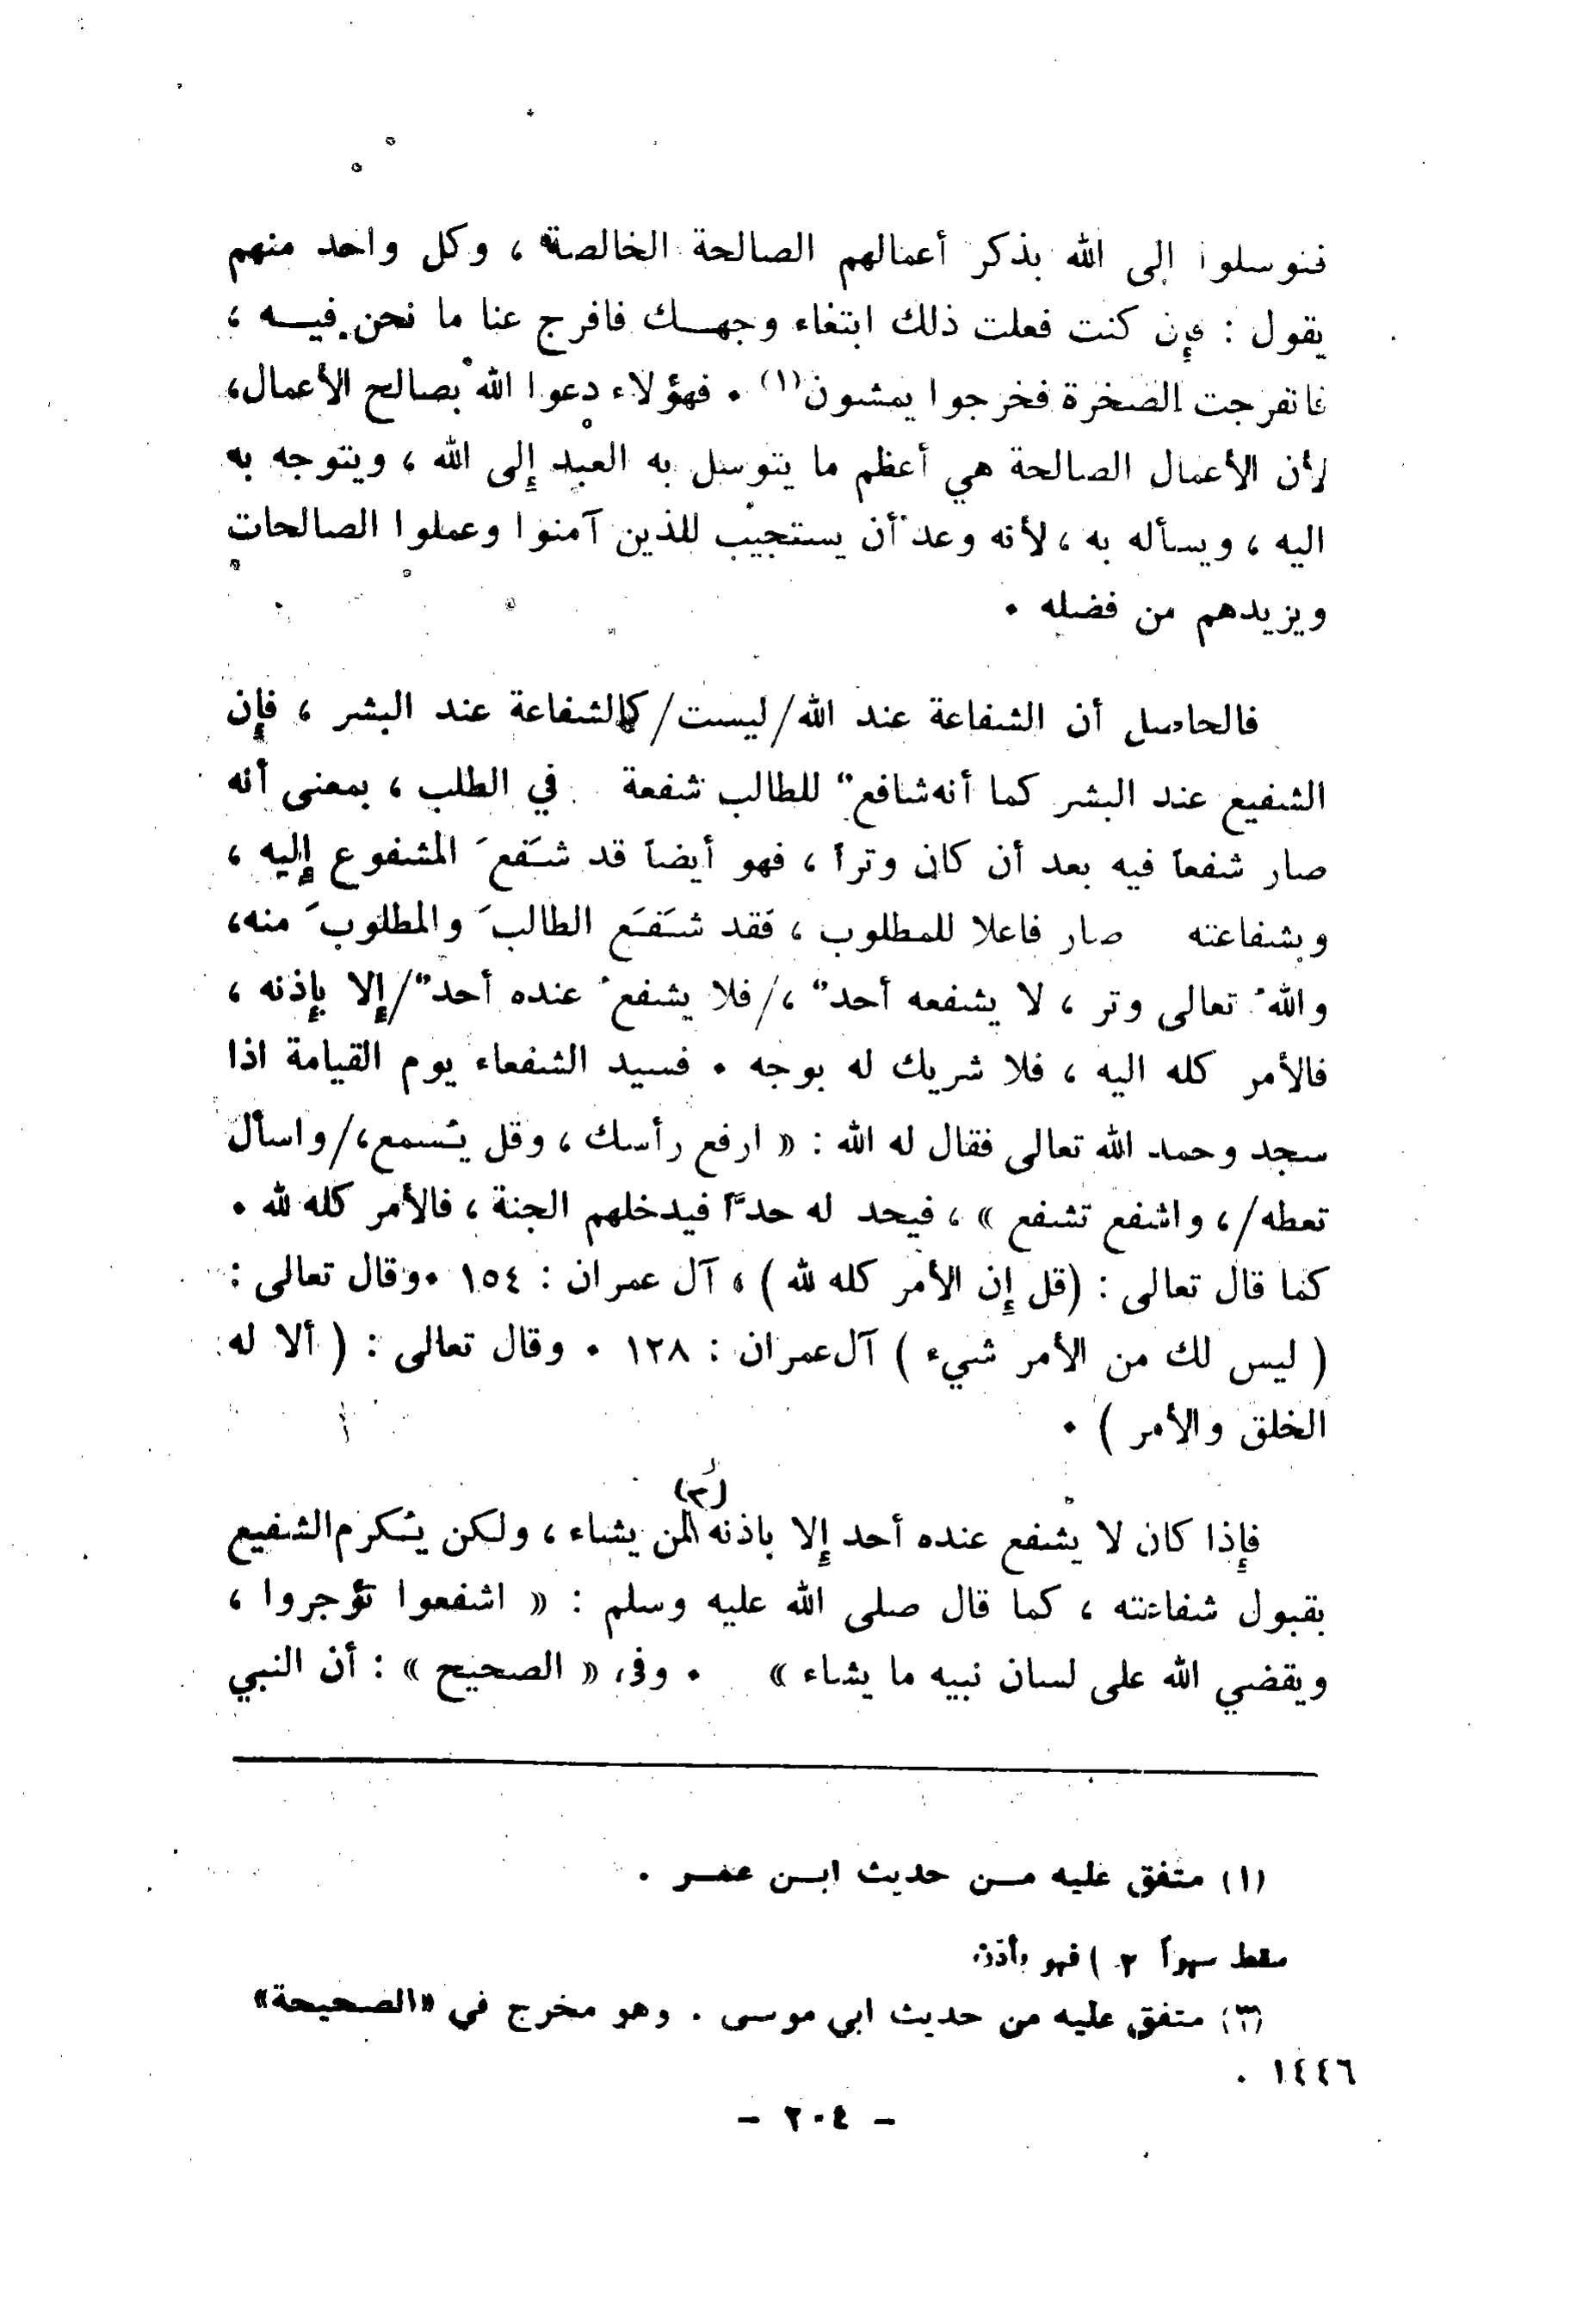 فتوسلوا إلى الله بذكر أعمالهم الصالحة الخالصة ، وكل واحد منهم
يقول : فإن كنت فعلت ذلك ابتغاء وجهـــك فافرج عنا ما نحن فيـــه ،
فانفرجت الصخرة فخرجوا يمشون(١) . فهؤلاء دعوا الله بصالح الأعمال،
لأن الأعمال الصالحة هي أعظم ما يتوسل به العبد إلى الله ، ويتوجه به
اليه ، ويسأله به ، لأنه وعد أن يستجيب للذين آمنوا وعملوا الصالحات
ويزيدهم من فضله .
فالحاصل أن الشفاعة عند الله/ليست/كالشفاعة عند البشر ، فإن
الشفيع عند البشر كما أنه شافعٌ للطالب شفعة في الطلب ، بمعنى أنه
صار شفعاً فيه بعد أن كان وتراً ، فهو أيضاً قد شَفَعَ المشفوع إليه ،
وبشفاعته صار فاعلا للمطلوب ، فقد شَفَعَ الطالبَ والمطلوبَ منه،
واللهُ تعالى وتر ، لا يشفعه أحدٌ ،/فلا يشفعُ عنده أحدٌ/إلا بإذنه ،
فالأمر كله اليه ، فلا شريك له بوجه . فسيد الشفعاء يوم القيامة اذا
سجد وحمد الله تعالى فقال له الله : « ارفع رأسك ، وقل يُسمع،/واسأل
تعطه/، واشفع تشفع » ، فيحد له حدّاً فيدخلهم الجنة ، فالأمر كله لله .
كما قال تعالى : (قل إن الأمر كله لله ) ، آل عمران : ١٥٤ .وقال تعالى :
( ليس لك من الأمر شيء ) آل عمران : ١٢٨ . وقال تعالى : ( ألا له
الخلق والأمر ) .
فإذا كان لا يشفع عنده أحد إلا باذنه (٢) لمن يشاء ، ولكن يُكرم الشفيع
بقبول شفاعته ، كما قال صلى الله عليه وسلم : « اشفعوا تؤجروا ،
ويقضي الله على لسان نبيه ما يشاء » . وفي « الصحيح » : أن النبي
(١) متفق عليه مـــن حديث ابـــن عمـــر .
سقط سهواً ٢ ) فهو يأذن
(٣) متفق عليه من حديث ابي موسى . وهو مخرج في «الصحيحة»
١٤٤٦ .
- ٢٠٤ -